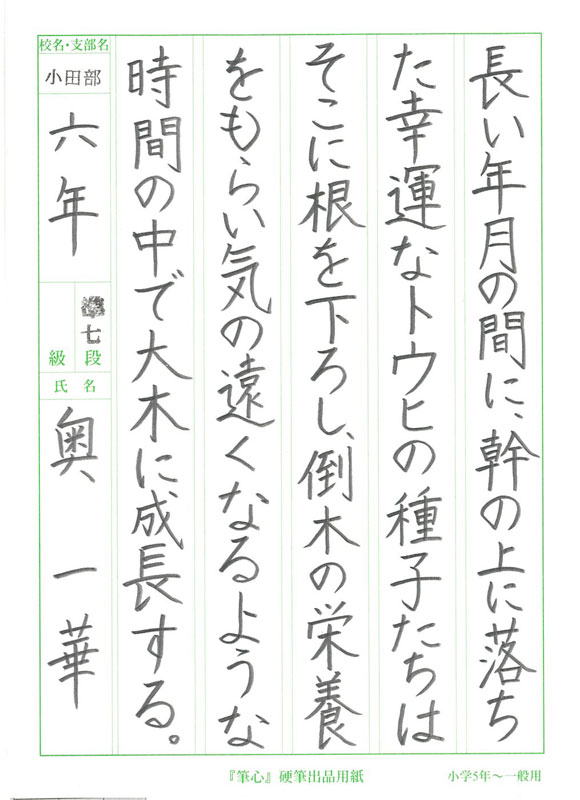 長い年月の間に、幹の上に落ち
た幸運なトウヒの種子たちは
そこに根を下ろし、倒木の栄養
をもらい気の遠くなるような
時間の中で大木に成長する。
校名・支部名
小田部
六年
準七段
級
氏名
奥一華
『筆心』硬筆出品用紙
小学5年～一般用